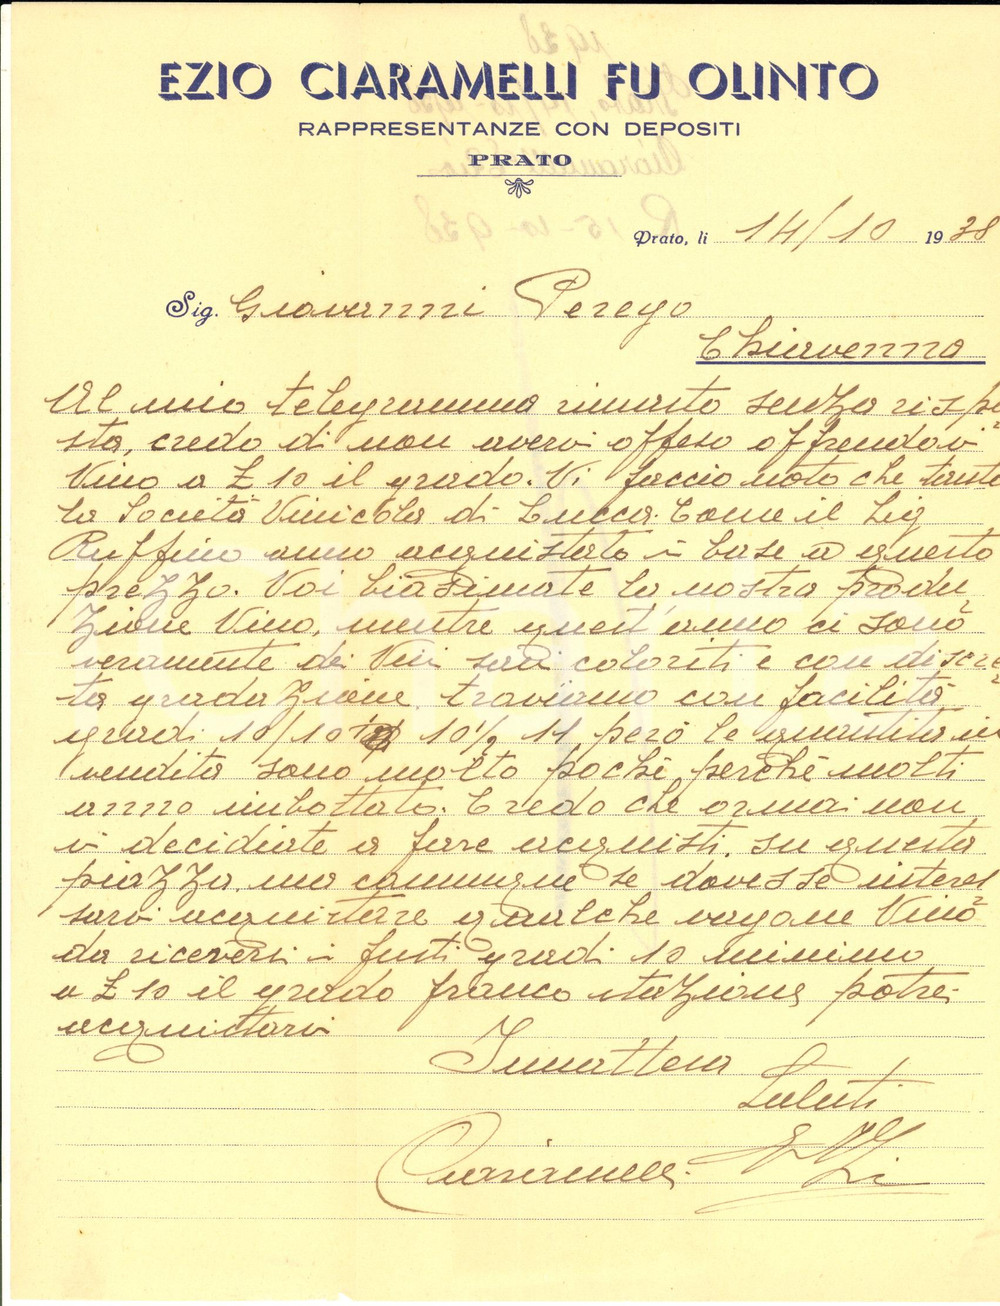 EZIO CIARAMELLI FU OLINTO
RAPPRESENTANZE CON DEPOSITI
PRATO
Prato, li 14/10 1938
Sig. Giovanni Perego
Chiavenna
Al mio telegramma rimasto senza rispo
sta, credo di non avervi offeso offrendovi
Vino a £ 10 il grado. Vi faccio noto che tanto
la Società Vinicola di Lucca. Come il Sig
Ruffino anno acquistato in base a questo
prezzo. Voi biasimate la nostra produ
zione Vino, mentre quest'anno ci sono
veramente dei Vini sani coloriti e con discre
ta gradazione, troviamo con facilità
gradi 10/10 10½ 11 però le quantità in
vendita sono molto pochi perchè molti
anno imbottato. Credo che ormai non
vi decidiate a fare acquisti, su questa
piazza, ma comunque se dovesse interes
sarvi acquistare qualche vagone Vino
da riceversi in fusti gradi 10 minimo
a £ 10 il grado franco stazione potrei
acquistarvi
In attesa
Saluti
Ciaramelli Ezio